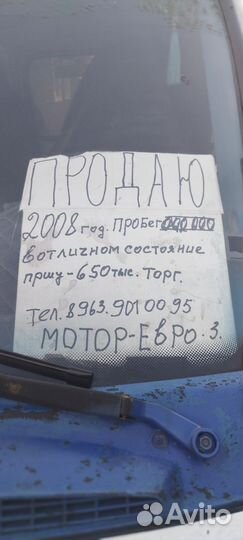 ПРОДАЮ
2008 год. ПРОБЕГ 000 000
в отличном состояние
пршу-650 тыс. торг.
Тел. 8963.901 00 95
МОТОР-ЕВРО.3.
Avito